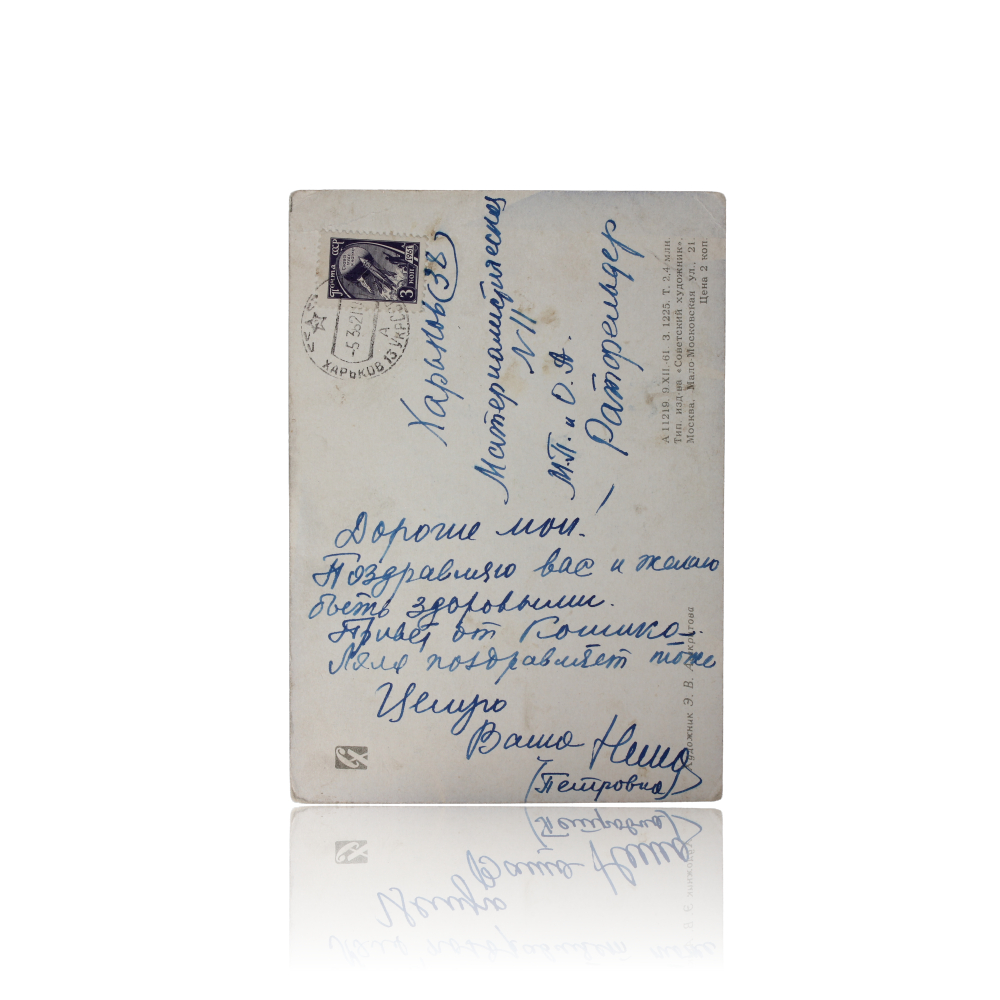 Почта СССР
1961
3 коп
ХАРЬКОВ 13 УКР
-5 3 62 11
Харьков (38)
Материалистическая
N 11
М.П. и О.А.
Ратфельдер
А 11219. 9.XII.61. З. 1225. Т. 2,4 млн.
Тип. изд-ва «Советский художник».
Москва, Мало Московская ул., 21.
Цена 2 коп.
Дорогие мои!
Поздравляю вас и желаю
быть здоровыми.
Привет от
Ляля поздравляет тоже
Целую
Ваша
(Петровна)
Художник Э. В.
СХ